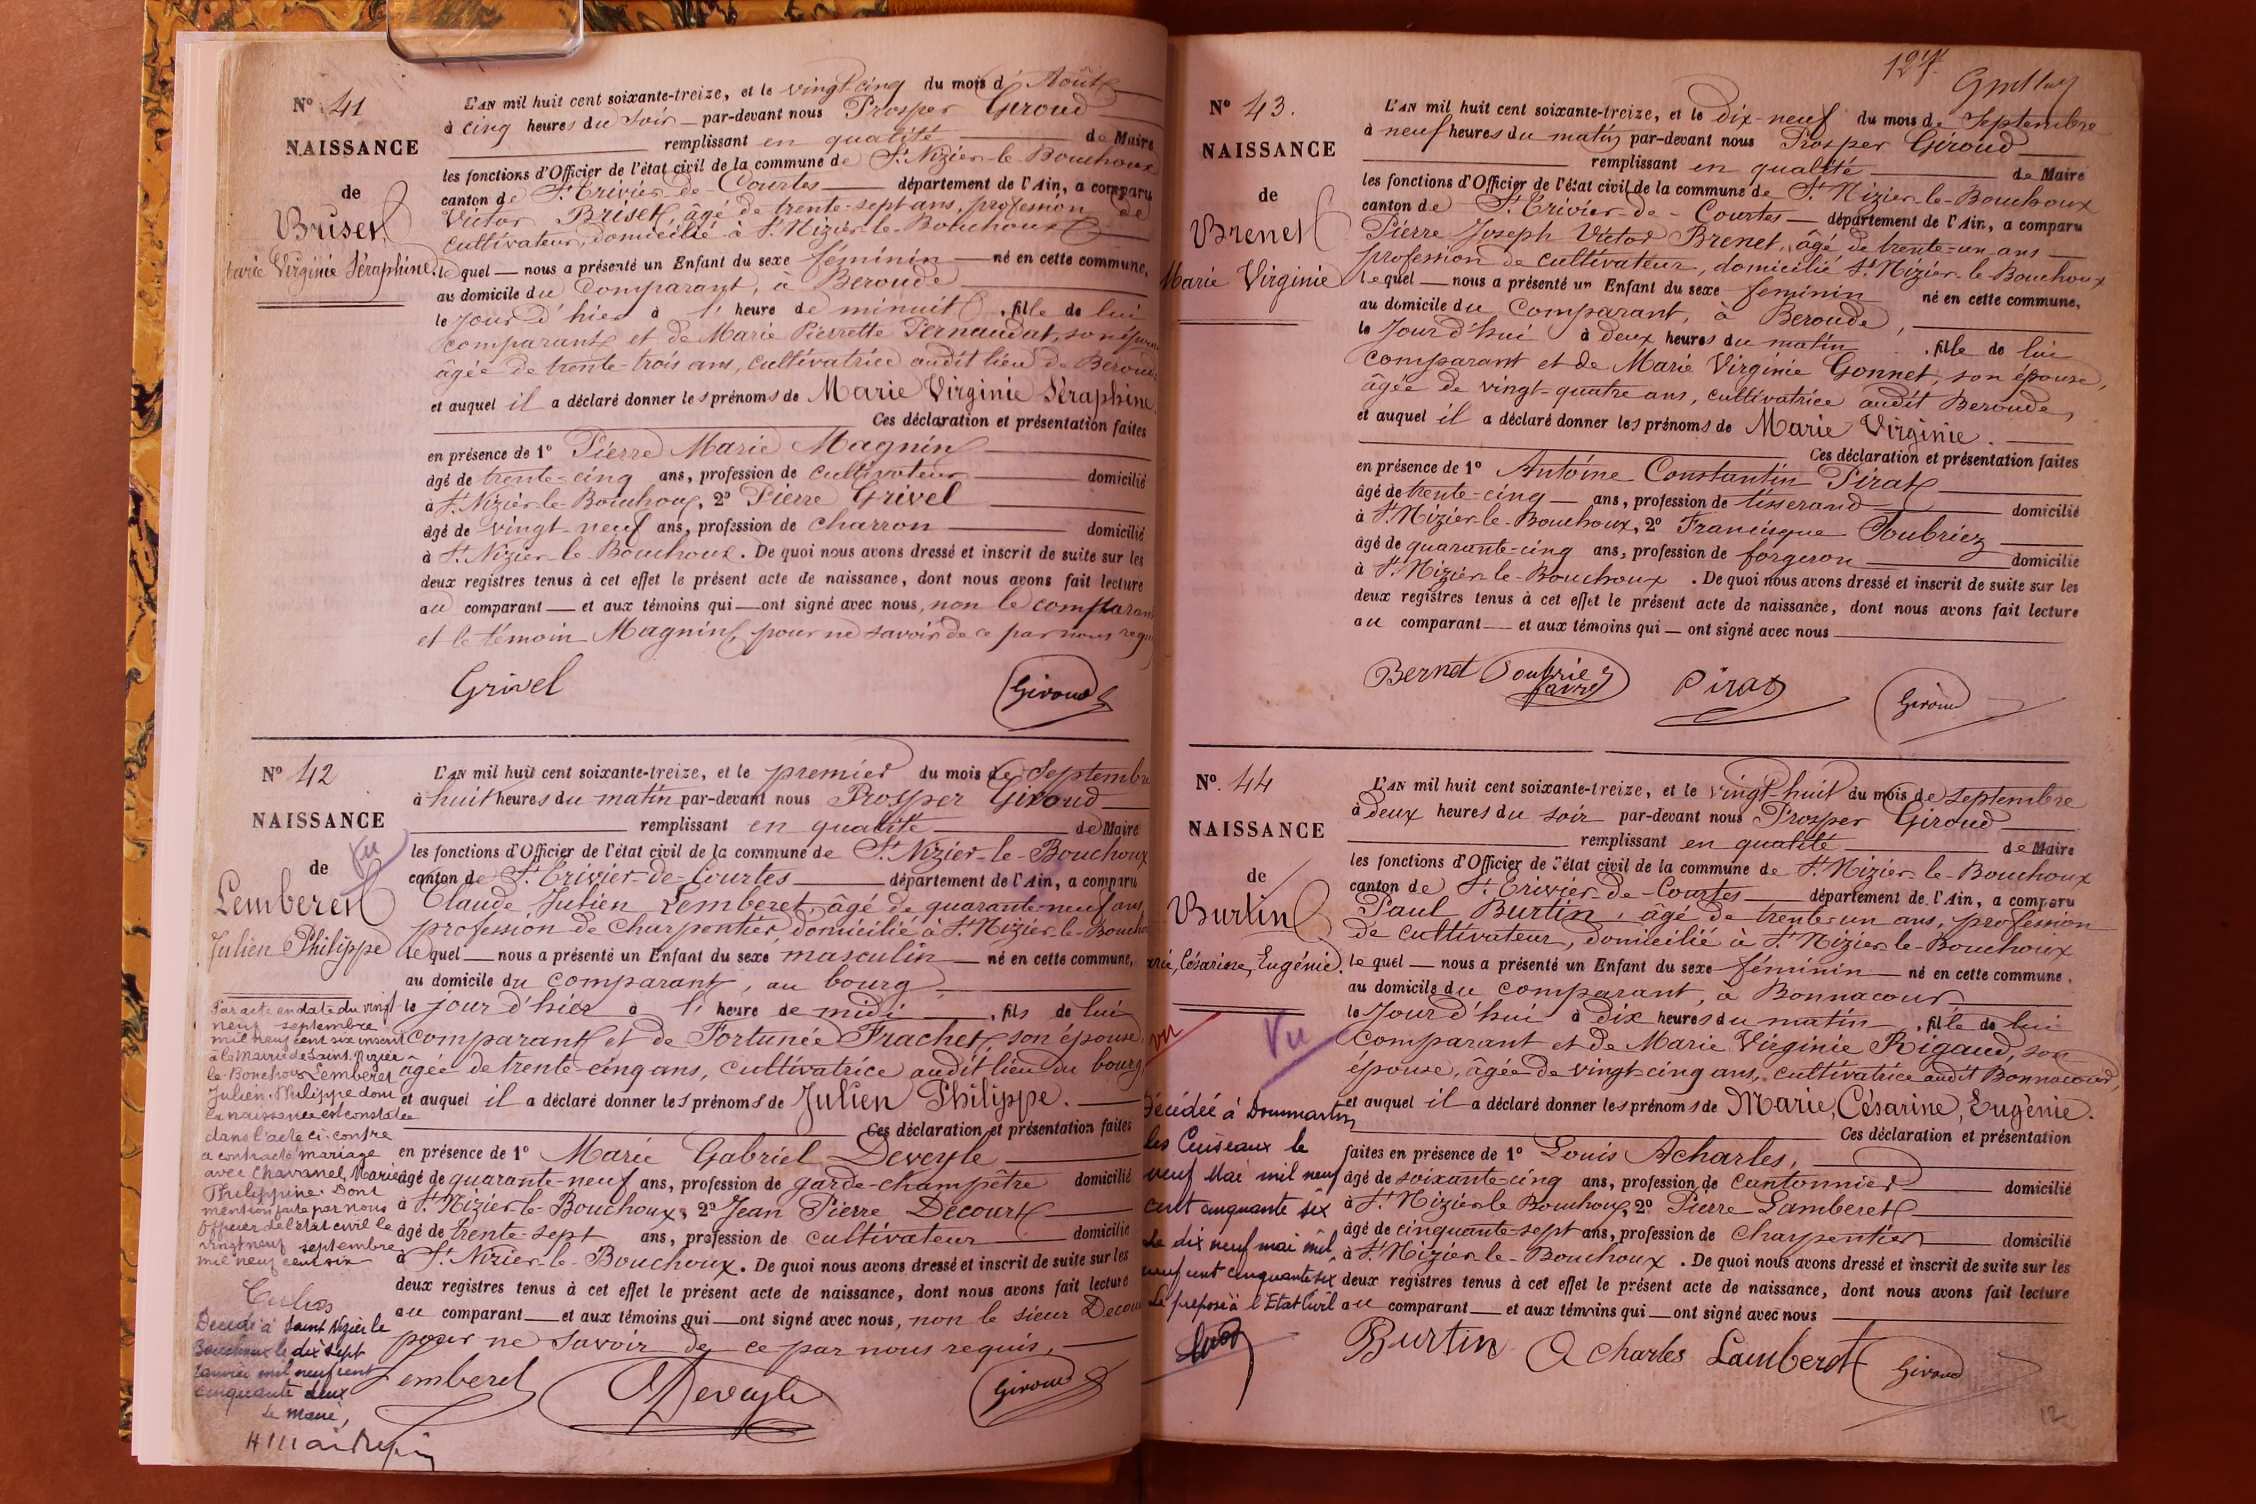 Nº 41
NAISSANCE
de
Briset
Marie Virginie Séraphine.
L'AN mil huit cent soixante-treize, et le vingt-cinq du mois d'Août
à cinq heures du soir par-devant nous Prosper Giroud
remplissant en qualité de Maire
les fonctions d'Officier de l'état civil de la commune de St Nizier-le-Bouchoux
canton de St Trivier-de-Courtes département de l'Ain, a comparu
Victor Briset, âgé de trente-sept ans, profession de
cultivateur, domicilié à St Nizier-le-Bouchoux
lequel nous a présenté un Enfant du sexe féminin né en cette commune,
au domicile du comparant, à Beroude
le jour d'hier à l'heure de minuit, fille de lui
comparant et de Marie Pierrette Pernaudat, son épouse
âgée de trente-trois ans, cultivatrice audit lieu de Beroude
et auquel il a déclaré donner les prénoms de Marie Virginie Séraphine.
Ces déclaration et présentation faites
en présence de 1º Pierre Marie Magnin
âgé de trente-cinq ans, profession de cultivateur domicilié
à St Nizier-le-Bouchoux, 2º Pierre Grivel
âgé de vingt-neuf ans, profession de charron domicilié
à St Nizier-le-Bouchoux. De quoi nous avons dressé et inscrit de suite sur les
deux registres tenus à cet effet le présent acte de naissance, dont nous avons fait lecture
au comparant et aux témoins qui ont signé avec nous, non le comparant
et le témoin Magnin, pour ne savoir de ce par nous requis
Grivel
Giroud
Nº 42
NAISSANCE
de
Vu
Lemberet
Julien Philippe
L'AN mil huit cent soixante-treize, et le premier du mois de Septembre
à huit heures du matin par-devant nous Prosper Giroud
remplissant en qualité de Maire
les fonctions d'Officier de l'état civil de la commune de St Nizier-le-Bouchoux
canton de St Trivier-de-Courtes département de l'Ain, a comparu
Claude Julien Lemberet âgé de quarante-neuf ans
profession de charpentier, domicilié à St Nizier-le-Bouchoux
lequel nous a présenté un Enfant du sexe masculin né en cette commune,
au domicile du comparant, au bourg,
le jour d'hier à l'heure de midi, fils de lui
comparant et de Fortunée Frachet, son épouse
âgée de trente-cinq ans, cultivatrice audit lieu du bourg
et auquel il a déclaré donner les prénoms de Julien Philippe.
Ces déclaration et présentation faites
en présence de 1º Marie Gabriel Deveyle
âgé de quarante-neuf ans, profession de garde-champêtre domicilié
à St Nizier-le-Bouchoux, 2º Jean Pierre Decourt
âgé de trente-sept ans, profession de cultivateur domicilié
à St Nizier-le-Bouchoux. De quoi nous avons dressé et inscrit de suite sur les
deux registres tenus à cet effet le présent acte de naissance, dont nous avons fait lecture
au comparant et aux témoins qui ont signé avec nous, non le sieur Decourt
pour ne savoir de ce par nous requis.
Lemberet
Deveyle
Giroud
Par acte en date du vingt
neuf septembre
mil neuf cent six inscrit
à la Mairie de Saint-Nizier
le-Bouchoux Lemberet
Julien-Philippe dont
la naissance est constatée
dans l'acte ci-contre
a contracté mariage
avec Chavanel, Marie
Philippine. Dont
mention faite par nous
Officier de l'état civil le
vingt neuf septembre
mil neuf cent six
Décédé à Saint Nizier le
Bouchoux le dix sept
Janvier mil neuf cent
cinquante deux
Le Maire,
Nº 43.
NAISSANCE
de
Brenet
Marie Virginie
127.
L'AN mil huit cent soixante-treize, et le dix-neuf du mois de Septembre
à neuf heures du matin par-devant nous Prosper Giroud
remplissant en qualité de Maire
les fonctions d'Officier de l'état civil de la commune de St Nizier-le-Bouchoux
canton de St Trivier-de-Courtes département de l'Ain, a comparu
Pierre Joseph Victor Brenet, âgé de trente-un ans
profession de cultivateur, domicilié St Nizier-le-Bouchoux
lequel nous a présenté un Enfant du sexe feminin né en cette commune,
au domicile du comparant, à Beroude,
le jour d'hui à deux heures du matin, fille de lui
comparant et de Marie Virginie Gonnet, son épouse,
âgée de vingt-quatre ans, cultivatrice audit Beroude,
et auquel il a déclaré donner les prénoms de Marie Virginie.
Ces déclaration et présentation faites
en présence de 1º Antoine Constantin Pirat
âgé de trente-cinq ans, profession de tisserand domicilié
à St Nizier-le-Bouchoux, 2º Francisque Soubriez
âgé de quarante-cinq ans, profession de forgeron domicilié
à St Nizier-le-Bouchoux. De quoi nous avons dressé et inscrit de suite sur les
deux registres tenus à cet effet le présent acte de naissance, dont nous avons fait lecture
au comparant et aux témoins qui ont signé avec nous
Bernet
Pirat
Giroud
Nº 44
NAISSANCE
de
Burtin
Marie, Césarine, Eugénie.
vu
Vu
L'AN mil huit cent soixante-treize, et le vingt-huit du mois de septembre
à deux heures du soir par-devant nous Prosper Giroud
remplissant en qualité de Maire
les fonctions d'Officier de l'état civil de la commune de St Nizier-le-Bouchoux
canton de St Trivier-de-Courtes département de l'Ain, a comparu
Paul Burtin, âgé de trente-un ans, profession
de cultivateur, domicilié à St Nizier-le-Bouchoux
lequel nous a présenté un Enfant du sexe féminin né en cette commune,
au domicile du comparant, à Bonnacour
le jour d'hui à dix heures du matin, fille de lui
comparant et de Marie Virginie Rigaud, son
épouse, âgée de vingt-cinq ans, cultivatrice audit Bonnacour,
et auquel il a déclaré donner les prénoms de Marie, Césarine, Eugénie.
Ces déclaration et présentation
faites en présence de 1º Louis Acharles,
âgé de soixante-cinq ans, profession de cantonnier domicilié
à St Nizier-le Bouchoux, 2º Pierre Lamberet
âgé de cinquante-sept ans, profession de charpentier domicilié
à St Nizier-le-Bouchoux. De quoi nous avons dressé et inscrit de suite sur les
deux registres tenus à cet effet le présent acte de naissance, dont nous avons fait lecture
au comparant et aux témoins qui ont signé avec nous
Burtin Acharles Lamberet Giroud
Décédée à Dommartin
les Cuiseaux le
neuf Mai mil neuf
cent cinquante six
Le dix neuf mai mil
neuf cent cinquante six
Le préposé à l'Etat Civil
12